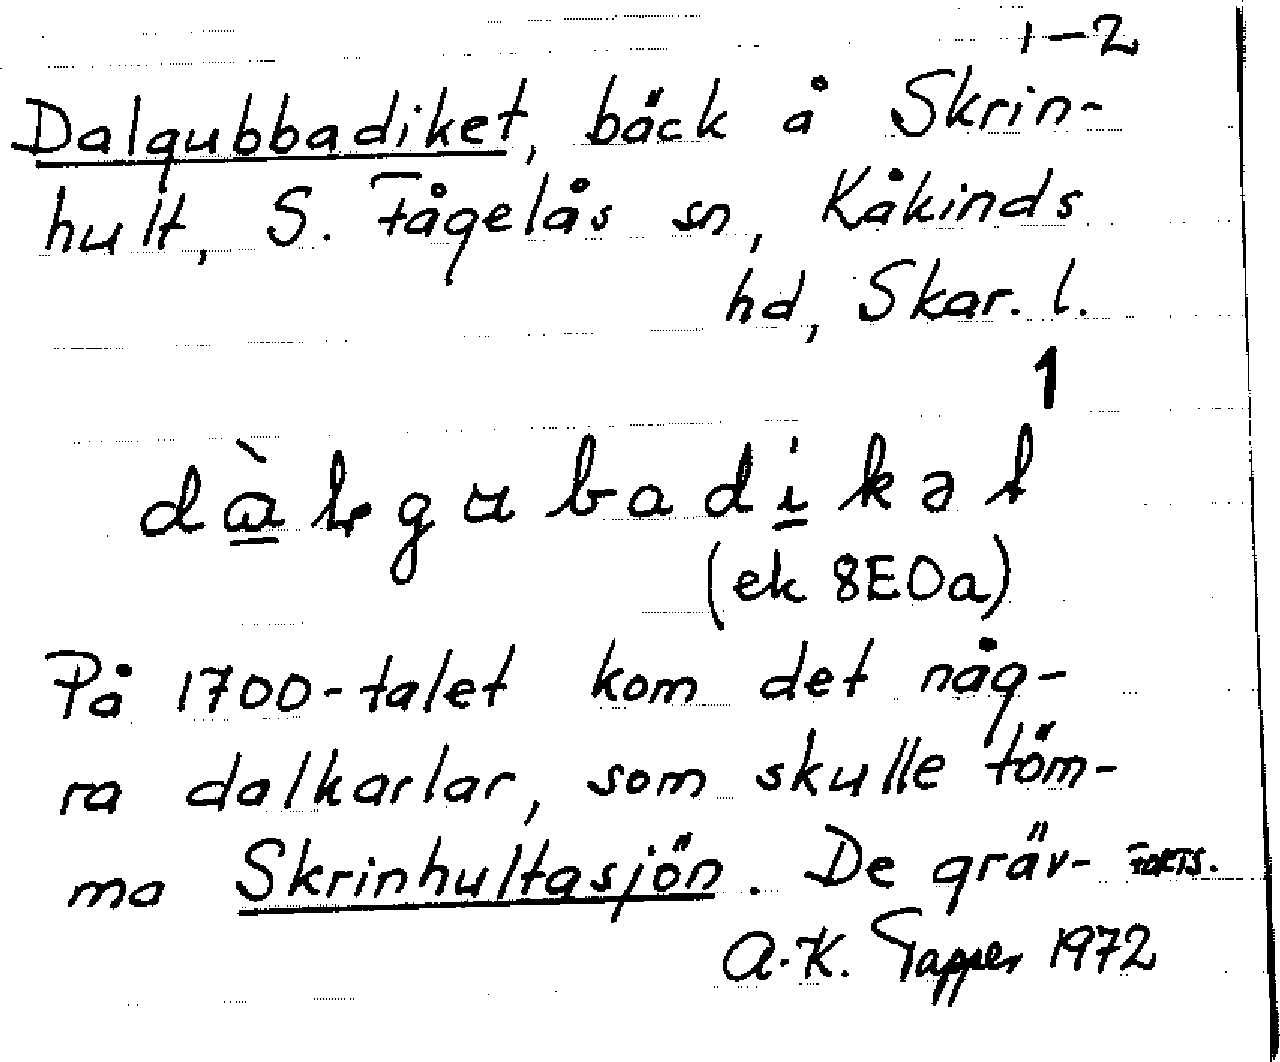 1-2
Dalgubbadiket, bäck å Skrin-
hult, S. Fågelås sn, Kåkinds
hd, Skar. l.
1
(ek 8E0a)
På 1700-talet kom det någ-
ra dalkarlar, som skulle töm-
ma Skrinhultasjön. De gräv- FORTS.
A.K. Tapper 1972